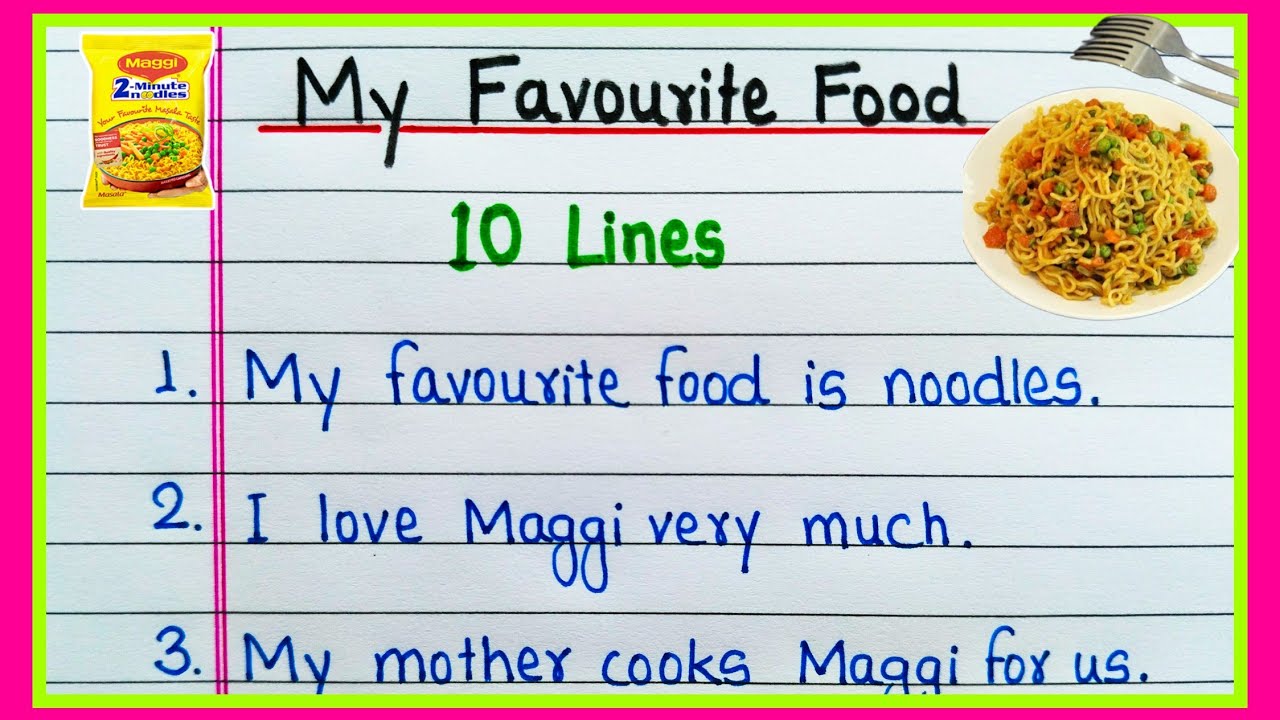 Maggi
2-Minute
noodles
Your Favourite Masala Taste
Masala
My Favourite Food
10 Lines
1. My favourite food is noodles.
2. I love Maggi very much.
3. My mother cooks Maggi for us.